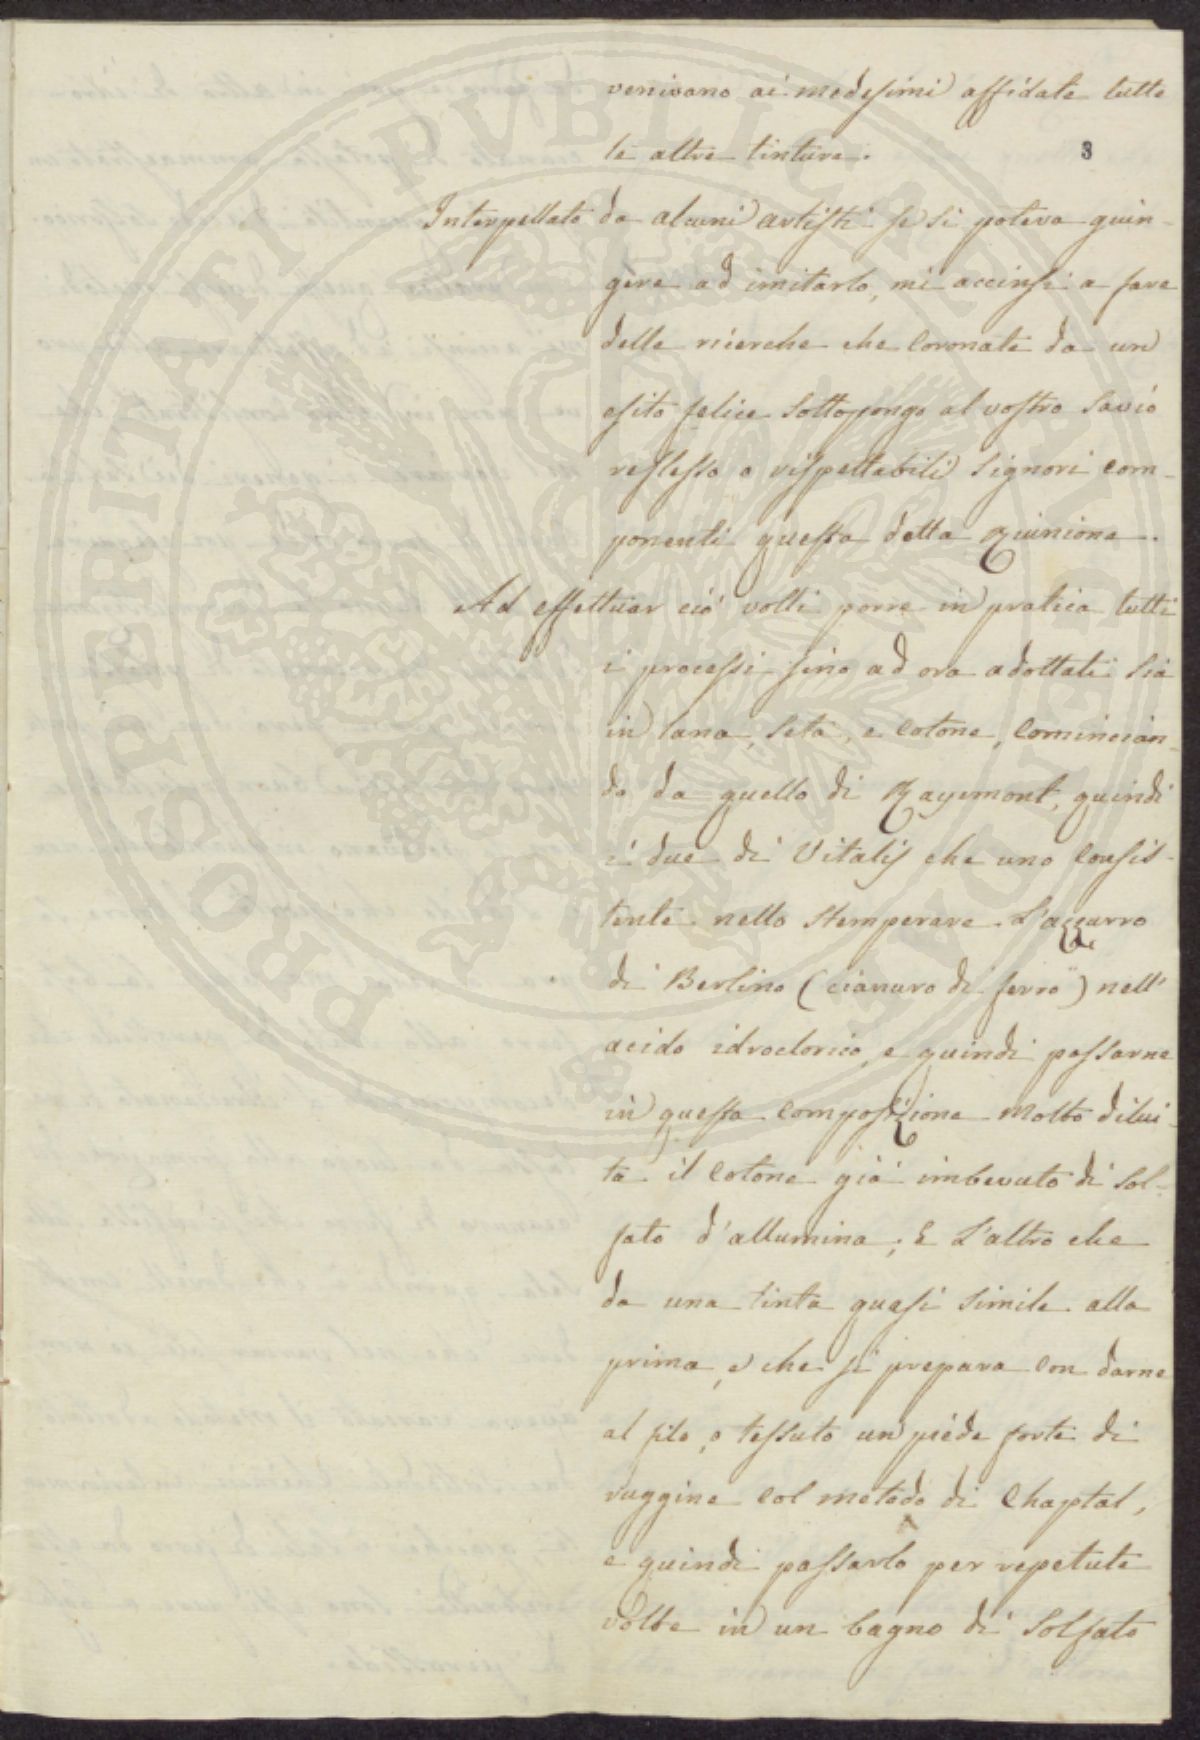 venivano ai medesimi affidate tutte
le altre tinture.
3
Interpellato da alcuni artisti se si poteva giun-
gere ad imitarlo, mi accinsi a fare
delle ricerche che coronate da un
esito felice sottopongo al vostro savio
reflesso o rispettabili Signori com-
ponenti questa dotta Riunione.
Ad effettuar ciò volli porre in pratica tutti
i processi fino ad ora adottati sia
in lana, seta, e cotone, comincian-
do da quello di Raymont, quindi
i due di Vitalis che uno consis-
tente nello stemperare l'azzurro
di Berlino (cianuro di ferro) nell'
acido idroclorico, e quindi passarne
in questa composizione molto dilui-
ta il cotone già imbevuto di sol-
fato d'allumina; e l'altro che
da una tinta quasi simile alla
prima, e che si prepara con darne
al filo, o tessuto un piede forte di
ruggine col metodo di Chaptal,
e quindi passarlo per repetute
volte in un bagno di solfato
PROSPERITATI PVBLICAE AVGENDAE